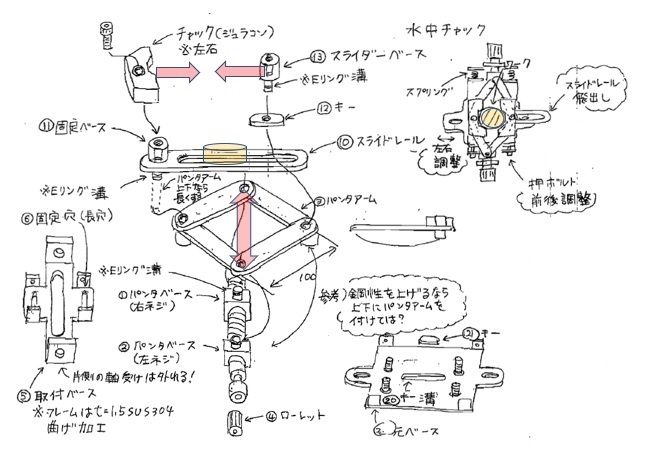 チャック(ジュラコン)
※左右
⑬スライダーベース
※Eリング溝
⑫キー
⑪固定ベース
⑩スライドレール
※Eリング溝
パンタアーム
上下なら
長くする
③パンタアーム
⑥固定穴(長穴)
※Eリング溝
①パンタベース
(右ネジ)
100
②パンタベース
(左ネジ)
片側の軸受けは外れる!
⑤取付ベース
※フレームはt=1.5SUS304
曲げ加工
④ローレット
水中チャック
ワーク
スプリング
スライドレール
飛出し
左右
調整
押ボルト
前後調整
参考)剛性を上げるなら
上下にパンタアームを
付けては?
㉑キー
⑳キー溝
元ベース